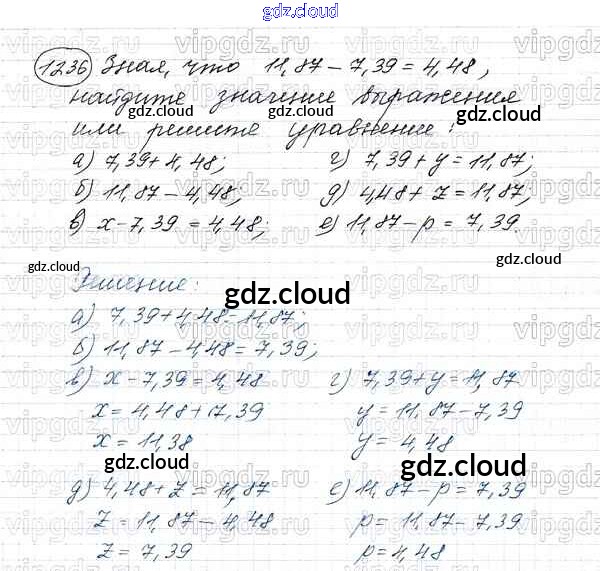 gdz.cloud
1236 Зная, что 11,87 − 7,39 = 4,48,
найдите значение выражения
или решите уравнение:
а) 7,39 + 4,48; г) 7,39 + y = 11,87;
б) 11,87 − 4,48; д) 4,48 + z = 11,87;
в) x − 7,39 = 4,48; е) 11,87 − p = 7,39.
Решение:
а) 7,39 + 4,48 = 11,87;
б) 11,87 − 4,48 = 7,39;
в) x − 7,39 = 4,48 г) 7,39 + y = 11,87
x = 4,48 + 7,39 y = 11,87 − 7,39
x = 11,38 y = 4,48
д) 4,48 + z = 11,87 е) 11,87 − p = 7,39
z = 11,87 − 4,48 p = 11,87 − 7,39
z = 7,39 p = 4,48